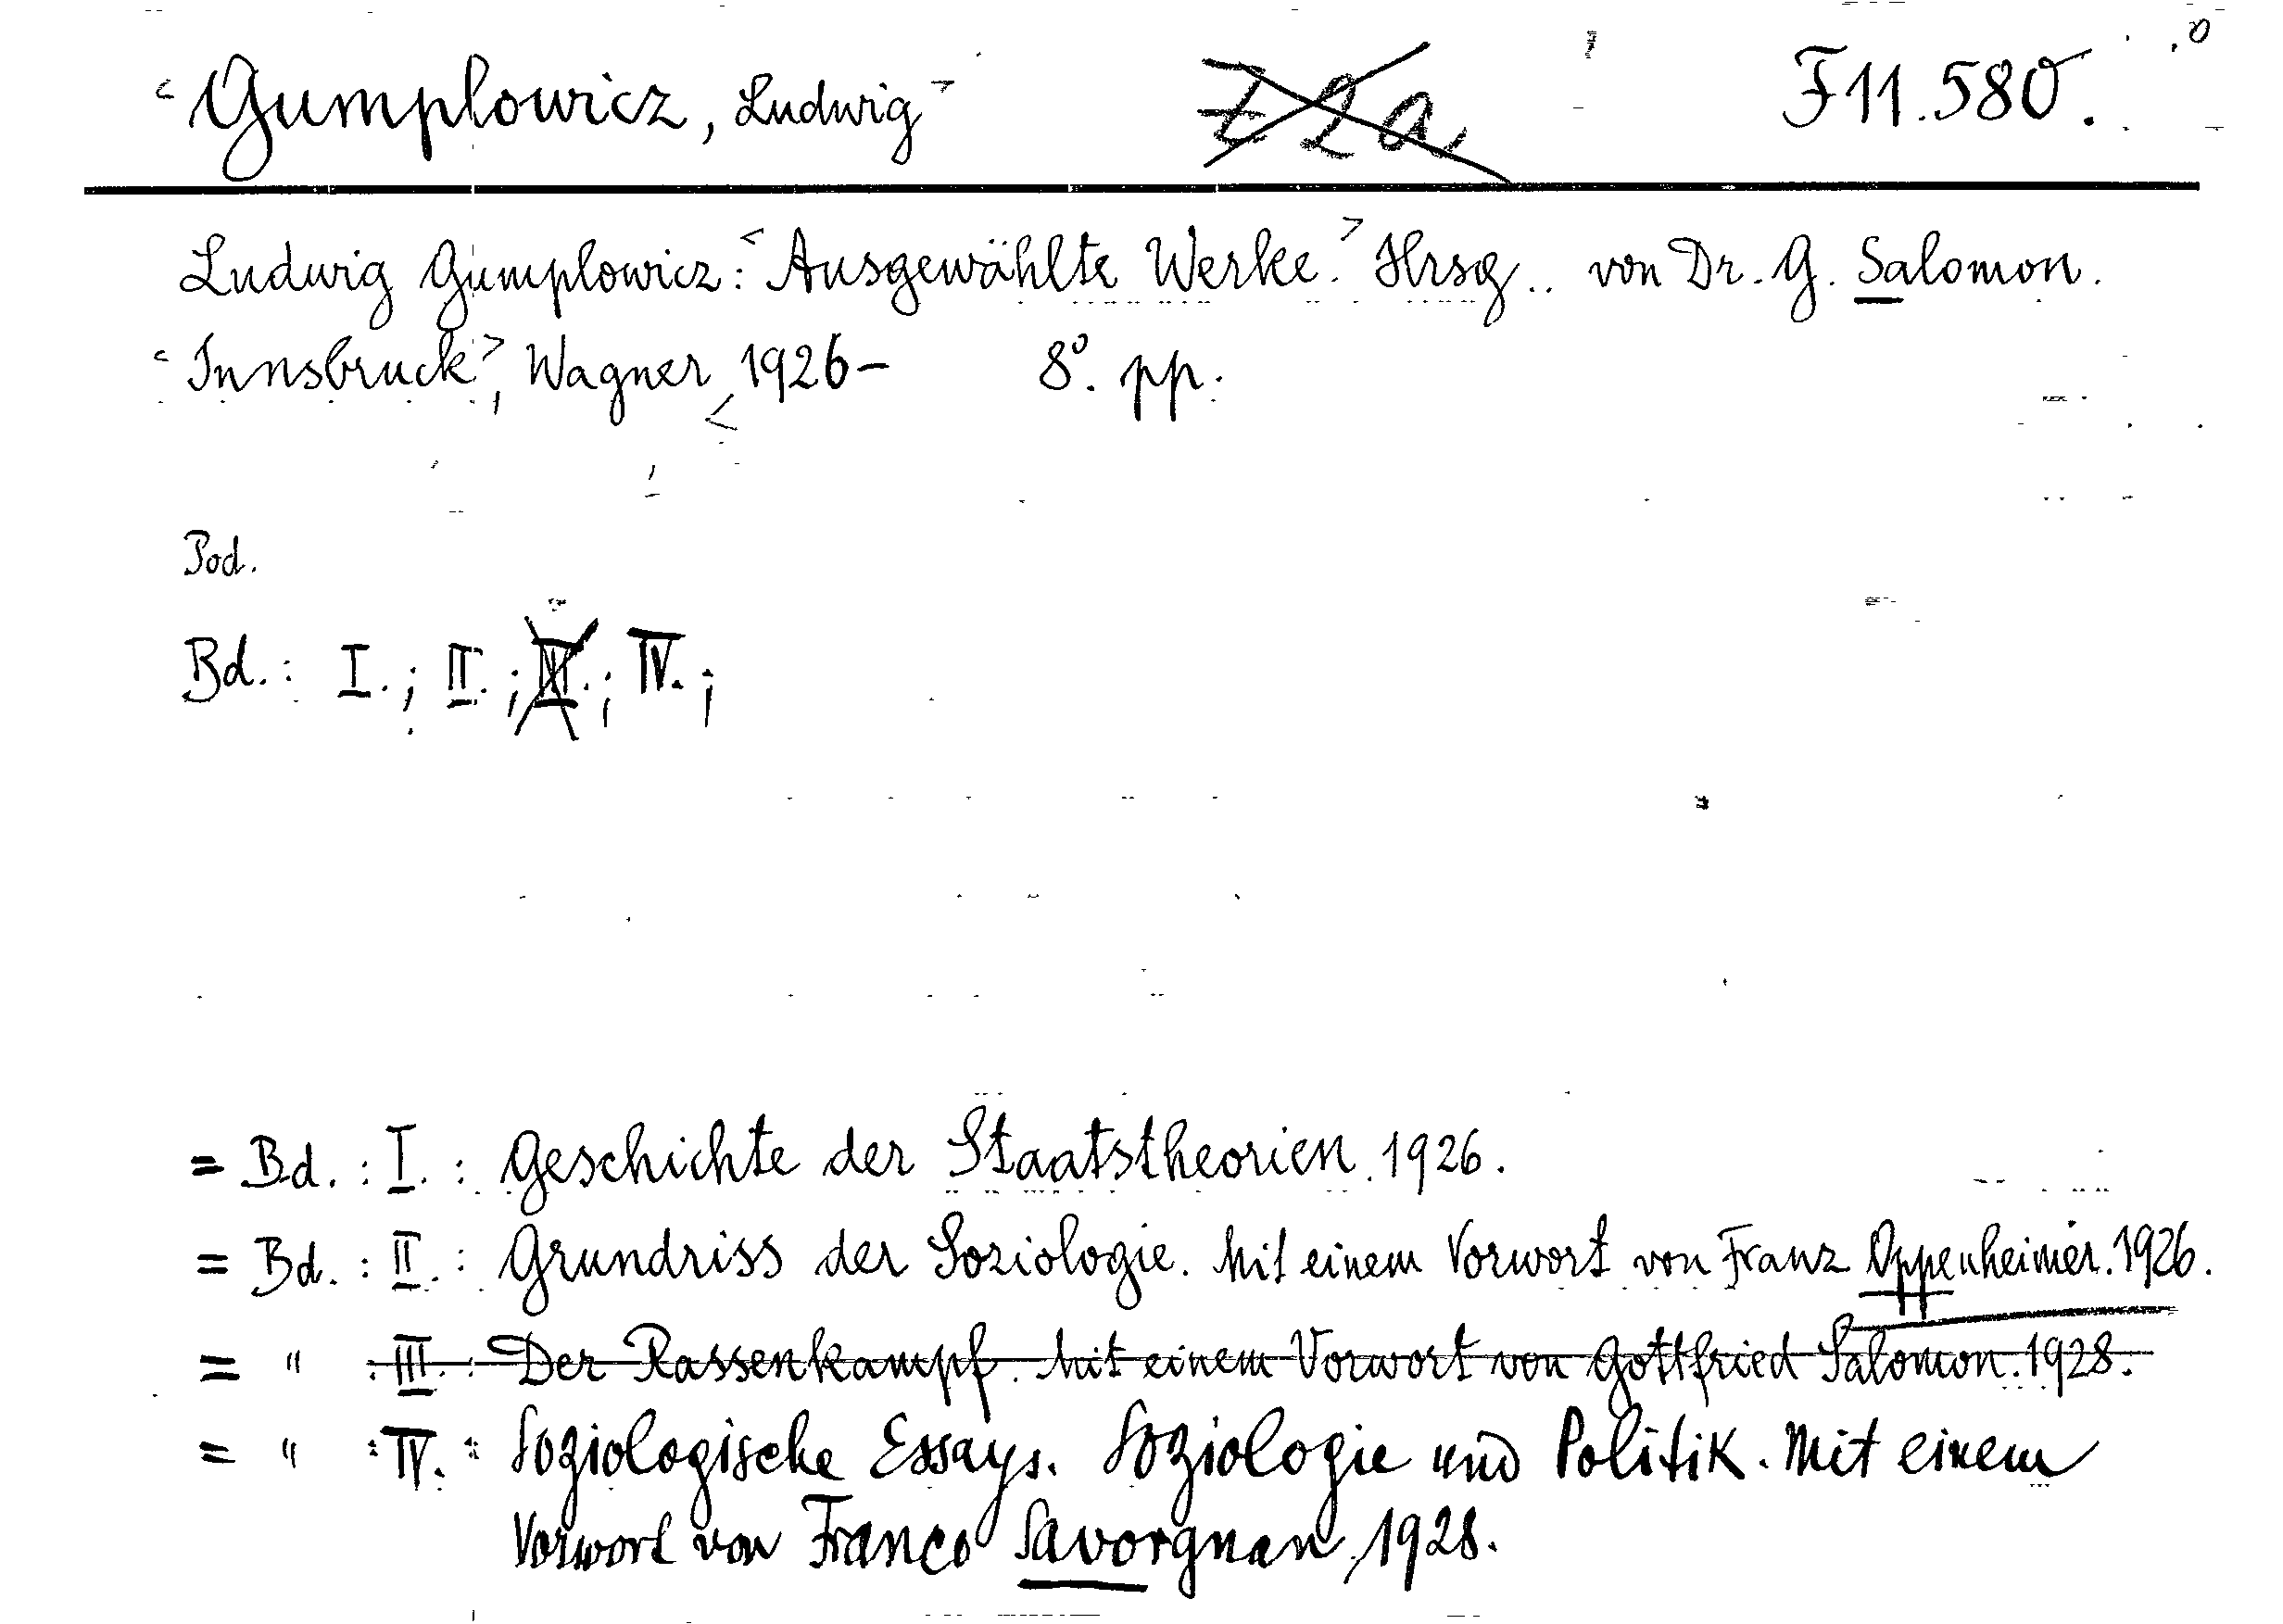 <Gumplowicz, Ludwig> Z 2a F 11.580.
Ludwig Gumplowicz: <Ausgewählte Werke.> Hrsg.. von Dr. G. Salomon.
<Innsbruck>, Wagner, 1926- 8°. pp.
Pod.
Bd.: I.; II.; III.; IV.;
= Bd.: I.: Geschichte der Staatstheorien. 1926.
= Bd.: II.: Grundriss der Soziologie. Mit einem Vorwort von Franz Oppenheimer. 1926.
= " : III.: Der Rassenkampf. Mit einem Vorwort von Gottfried Salomon. 1928.
= " : IV.: Soziologische Essays. Soziologie und Politik. Mit einem
Vorwort von Franco Savorgnan, 1928.